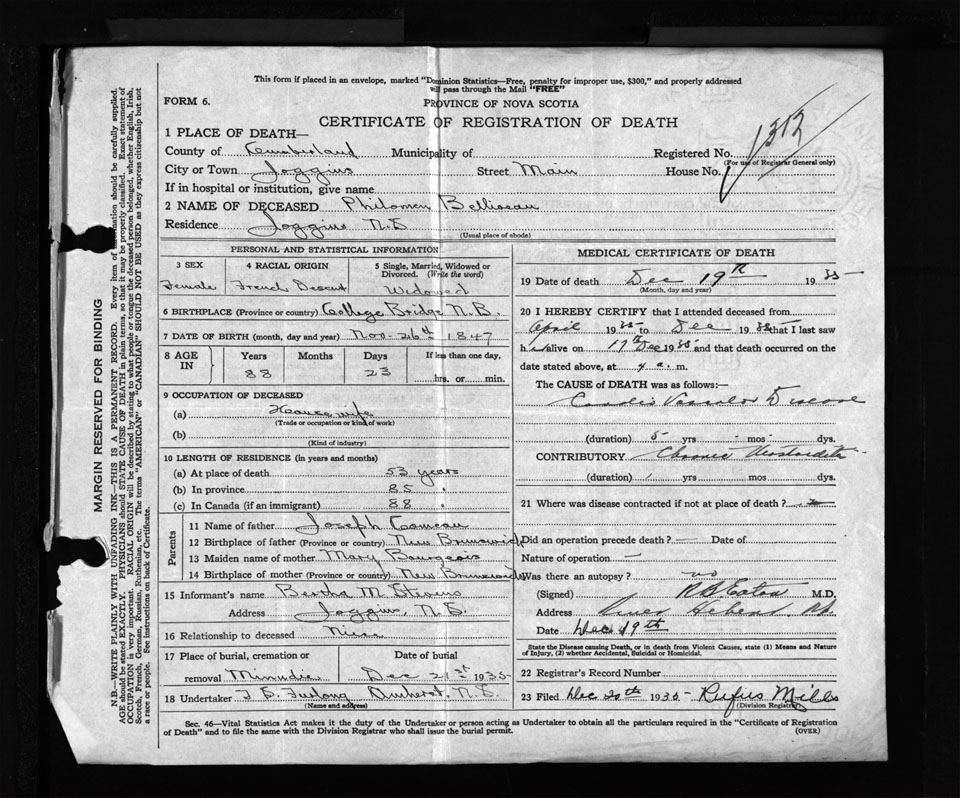 This form if placed in an envelope, marked "Dominion Statistics—Free, penalty for improper use, $300," and properly addressed
will pass through the Mail "FREE"
FORM 6.
PROVINCE OF NOVA SCOTIA
CERTIFICATE OF REGISTRATION OF DEATH
1313
1 PLACE OF DEATH—
County of Cumberland Municipality of Registered No.
(For use of Registrar General only)
City or Town Joggins Street Main House No.
If in hospital or institution, give name
2 NAME OF DECEASED Philomen Belliveau
Residence Joggins N.S
(Usual place of abode)
PERSONAL AND STATISTICAL INFORMATION
3 SEX 4 RACIAL ORIGIN 5 Single, Married, Widowed or Divorced. (Write the word)
Female French Descent Widowed
6 BIRTHPLACE (Province or country) College Bridge N.B.
7 DATE OF BIRTH (month, day and year) Nov. 26th 1847
8 AGE IN Years Months Days If less than one day,
88 23 hrs. or min.
9 OCCUPATION OF DECEASED
(a) House wife
(Trade or occupation or kind of work)
(b)
(Kind of industry)
10 LENGTH OF RESIDENCE (in years and months)
(a) At place of death 53 years
(b) In province 85 "
(c) In Canada (if an immigrant) 88 "
Parents
11 Name of father Joseph Comeau
12 Birthplace of father (Province or country) New Brunswick
13 Maiden name of mother Mary Bourgeois
14 Birthplace of mother (Province or country) New Brunswick
15 Informant's name Bertha M.
Address Joggins N.S.
16 Relationship to deceased
17 Place of burial, cremation or removal Minudie
Date of burial Dec 21st 1935
18 Undertaker Furlong Amherst, N.S.
(Name and address)
MEDICAL CERTIFICATE OF DEATH
19 Date of death Dec 19th 1935
(Month, day and year)
20 I HEREBY CERTIFY that I attended deceased from
April 1935 to Dec 1935 that I last saw
h er alive on 19th Dec 1935 and that death occurred on the
date stated above, at a. m.
The CAUSE of DEATH was as follows:—
Cardio Vascular Disease
(duration) 5 yrs. - mos. - dys.
CONTRIBUTORY Chronic
(duration) yrs. mos. dys.
21 Where was disease contracted if not at place of death?
Did an operation precede death? — Date of
Nature of operation —
Was there an autopsy? no
(Signed) M.D,
Address
Date Dec 19th
State the Disease causing Death, or in death from Violent Causes, state (1) Means and Nature
of Injury, (2) whether Accidental, Suicidal or Homicidal.
22 Registrar's Record Number
23 Filed Dec 20th 1935 Rufus Mills
(Division Registrar)
Sec. 46—Vital Statistics Act makes it the duty of the Undertaker or person acting as Undertaker to obtain all the particulars required in the "Certificate of Registration
of Death" and to file the same with the Division Registrar who shall issue the burial permit.
(OVER)
MARGIN RESERVED FOR BINDING
N.B—WRITE PLAINLY WITH UNFADING INK—THIS IS A PERMANENT RECORD. Every item of information should be carefully supplied.
AGE should be stated EXACTLY. PHYSICIANS should STATE CAUSE OF DEATH in plain terms, so that it may be properly classified. Exact statement of
OCCUPATION is very important. RACIAL ORIGIN will be described by stating to what people or tongue the deceased person belonged, whether English, Irish,
Scotch, French, German, Russian, Ruthenian, etc. The terms "AMERICAN" or "CANADIAN" SHOULD NOT BE USED as they express citizenship but not
a race or people. See instructions on back of Certificate.